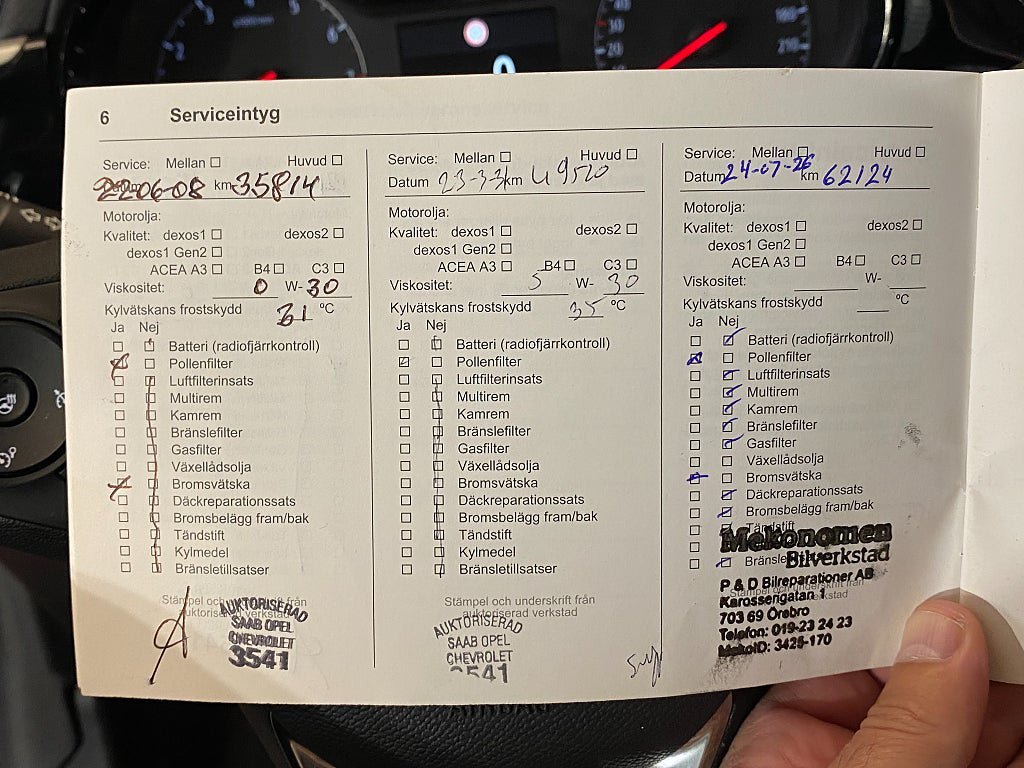 6 Serviceintyg
Service: Mellan Huvud
22-06-08 km 35814
Motorolja:
Kvalitet: dexos1 dexos2
dexos1 Gen2
ACEA A3 B4 C3
Viskositet: 0 W- 30
Kylvätskans frostskydd 31 °C
Ja Nej
Batteri (radiofjärrkontroll)
Pollenfilter
Luftfilterinsats
Multirem
Kamrem
Bränslefilter
Gasfilter
Växellådsolja
Bromsvätska
Däckreparationssats
Bromsbelägg fram/bak
Tändstift
Kylmedel
Bränsletillsatser
Stämpel och underskrift från
auktoriserad verkstad
AUKTORISERAD
SAAB OPEL
CHEVROLET
3541
Service: Mellan Huvud
Datum 23- km 49520
Motorolja:
Kvalitet: dexos1 dexos2
dexos1 Gen2
ACEA A3 B4 C3
Viskositet: 5 W- 30
Kylvätskans frostskydd 35 °C
Ja Nej
Batteri (radiofjärrkontroll)
Pollenfilter
Luftfilterinsats
Multirem
Kamrem
Bränslefilter
Gasfilter
Växellådsolja
Bromsvätska
Däckreparationssats
Bromsbelägg fram/bak
Tändstift
Kylmedel
Bränsletillsatser
Stämpel och underskrift från
auktoriserad verkstad
AUKTORISERAD
SAAB OPEL
CHEVROLET
3541
Service: Mellan Huvud
Datum 24-07-26 km 62124
Motorolja:
Kvalitet: dexos1 dexos2
dexos1 Gen2
ACEA A3 B4 C3
Viskositet: W-
Kylvätskans frostskydd °C
Ja Nej
Batteri (radiofjärrkontroll)
Pollenfilter
Luftfilterinsats
Multirem
Kamrem
Bränslefilter
Gasfilter
Växellådsolja
Bromsvätska
Däckreparationssats
Bromsbelägg fram/bak
Tändstift
Mekonomen
Bilverkstad
P & D Bilreparationer AB
Karosserigatan 1
703 69 Örebro
Telefon: 019-23 24 23
MekoID: 3425-170